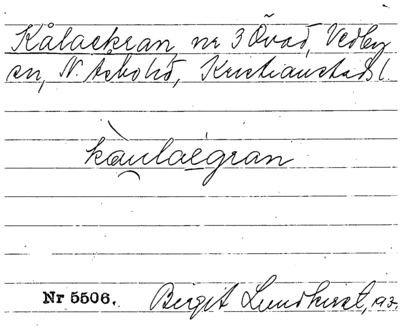 Kålackran, nr 3 Övad, Vedby
sn, N. Åsbohd, Kristianstads l.
kàulaégran
Nr 5506.
Birgit Lundkvist, 193.